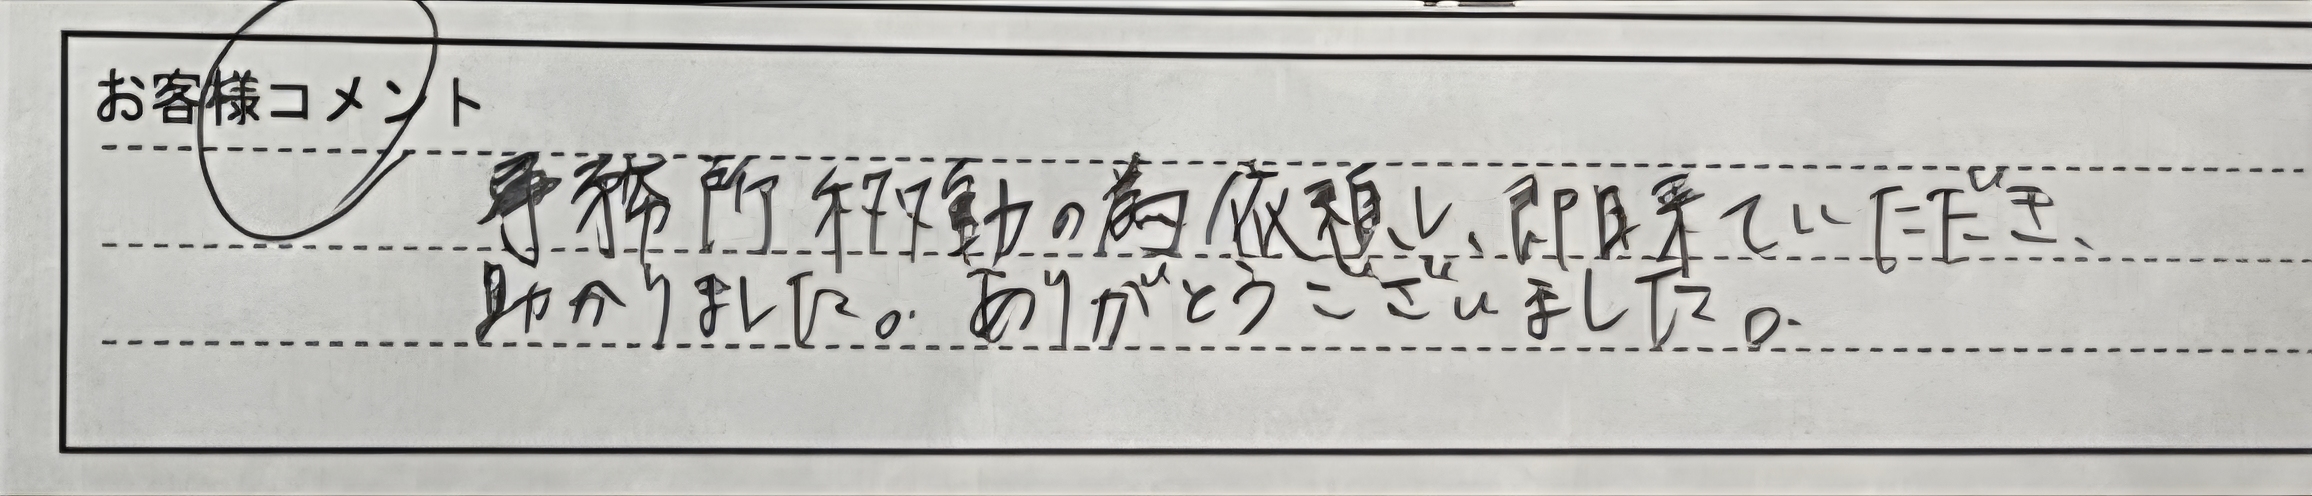 お客様コメント
事務所移動の為依頼し、即日来ていただき、
助かりました。ありがとうございました。